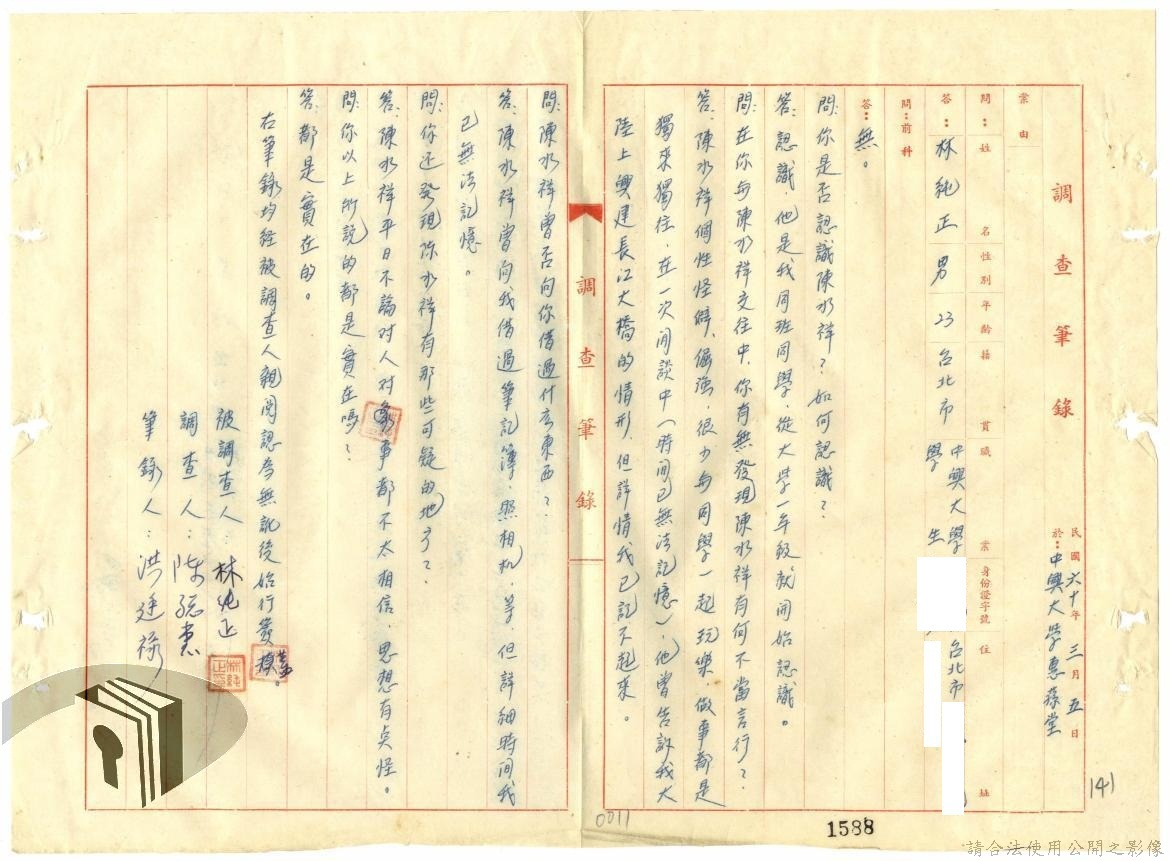 調查筆錄
民國六十年三月五日
於:中興大學惠蓀堂
案由
問:姓名性別年齡籍貫職業身份證字號住址
答:林純正 男 23 台北市 中興大學學生 台北市
問:前科
答:無。
問:你是否認識陳水祥?如何認識?
答:認識,他是我同班同學,從大學一年級就開始認識。
問:在你與陳水祥交往中,你有無發現陳水祥有何不當言行?
答:陳水祥個性怪僻、倔強,很少與同學一起玩樂,做事都是
獨來獨往,在一次閒談中(時間已無法記憶),他曾告訴我大
陸上興建長江大橋的情形,但詳情我已記不起來。
調查筆錄
問:陳水祥曾否向你借過什么東西?
答:陳水祥曾向我借過筆記簿、照相机、等,但詳細時間我
已無法記憶。
問:你还發現陳水祥有那些可疑的地方?
答:陳水祥平日不論对人对事都不太相信,思想有点怪。
問:你以上所説的都是實在嗎?
答:都是實在的。
右筆錄均經被調查人親閱認為無訛後始行簽章。
被調查人:林純正
林純正
調查人:陳
筆錄人:洪廷祿
141
0011
1588
請合法使用公開之影像